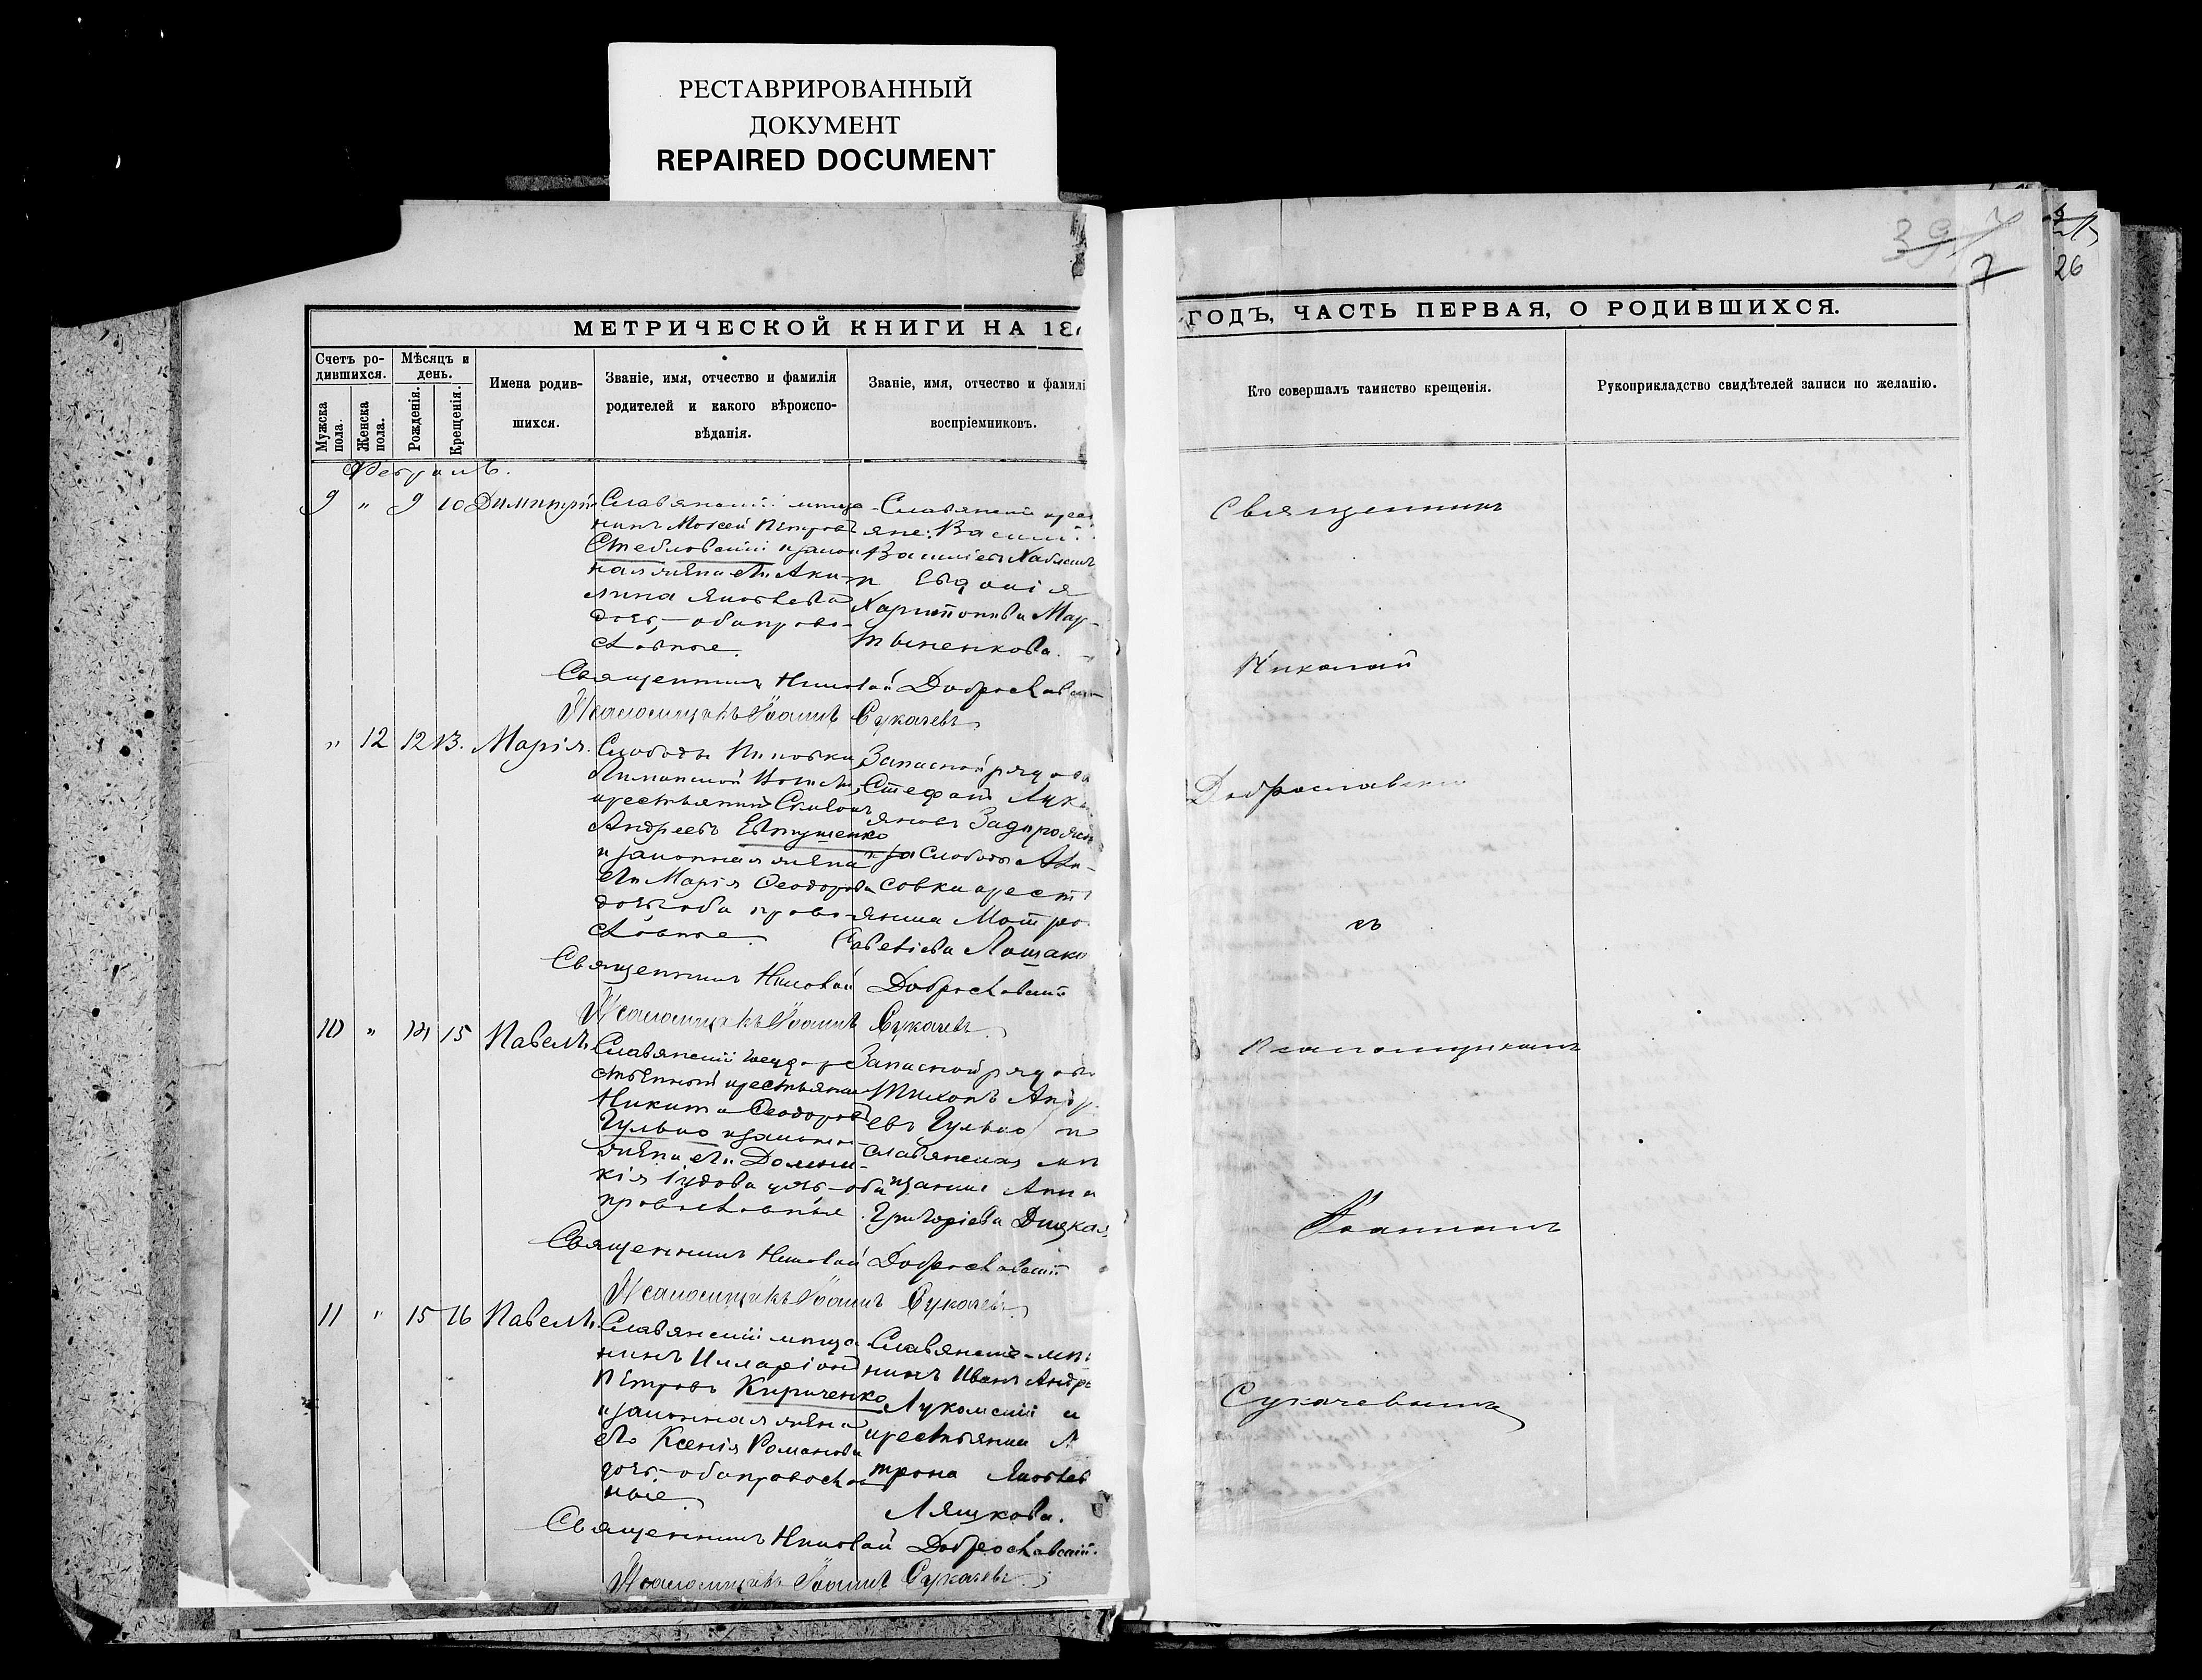 РЕСТАВРИРОВАННЫЙ
ДОКУМЕНТ
REPAIRED DOCUMENT
39/7
7
26
МЕТРИЧЕСКОЙ КНИГИ НА 18
ГОДЪ, ЧАСТЬ ПЕРВАЯ, О РОДИВШИХСЯ.
Счетъ ро-
дившихся.
Мужска
пола.
Женска
пола.
Мѣсяцъ и
день.
Рожденія.
Крещенія.
Имена родив-
шихся.
Званіе, имя, отчество и фамилія
родителей и какого вѣроиспо-
вѣданія.
Званіе, имя, отчество и фамилі
воспріемниковъ.
Кто совершалъ таинство крещенія.
Рукоприкладство свидѣтелей записи по желанію.
Февраль.
9 " 9 10 Димитрій
Славянскій мѣща-
нинъ Моисей Петровъ
Стебловскій и закон
ная жена его Аки-
лина Яковлева
дочь, — оба право-
славные.
Славянскіе крес
яне: Васил
Василіевъ
и Евдокія
Харитонова Мар-
тыненкова.
Священникъ Николай Доброславскій
Псаломщикъ Іоаннъ Сукачевъ
" 12 12 13. Марія.
Слободы
волости
крестьянинъ
Андреевъ Евтушенко
и законная жена
его Марія Ѳеодорова
дочь оба право-
славные.
Запасной рядово
Стефанъ Лук
яновъ
и слободы
совки крест
янка Матро
Савеліева
Священникъ Николай Доброславскій
Псаломщикъ Іоаннъ Сукачевъ
10 " 14 15 Павелъ
Славянскій государ
ственный крестьянинъ
Никита Ѳеодоровъ
Гулько и законная
жена его Домни-
кія Іудова дочь — оба
православные.
Запасной рядовы
Тихонъ Андр
евъ Гулько и
славянская мѣ
щанка Анна
Григоріева
Священникъ Николай Доброславскій
Псаломщикъ Іоаннъ Сукачевъ
11 " 15 16 Павелъ
Славянскій мѣща
нинъ Илларіонъ
Петровъ Кириченко
и законная жена
его Ксенія Романова
дочь — оба православ
ные.
Славянскіе — мѣщ
нинъ Иванъ Андре
Лукомскій и
крестьянка М
трона Яковлев
Ляшкова.
Священникъ Николай Доброславскій.
Псаломщикъ Іоаннъ Сукачевъ
Священникъ
Николай
Доброславскій
съ
Псаломщикомъ
Іоанномъ
Сукачевымъ